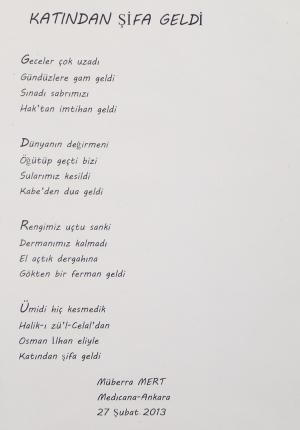 KATINDAN ŞİFA GELDİ
Geceler çok uzadı
Gündüzlere gam geldi
Sınadı sabrımızı
Hak'tan imtihan geldi
Dünyanın değirmeni
Öğütüp geçti bizi
Sularımız kesildi
Kabe'den dua geldi
Rengimiz uçtu sanki
Dermanımız kalmadı
El açtık dergahına
Gökten bir ferman geldi
Ümidi hiç kesmedik
Halik-ı zü'l-Celal'dan
Osman İlhan eliyle
Katından şifa geldi
Müberra MERT
Medicana-Ankara
27 Şubat 2013